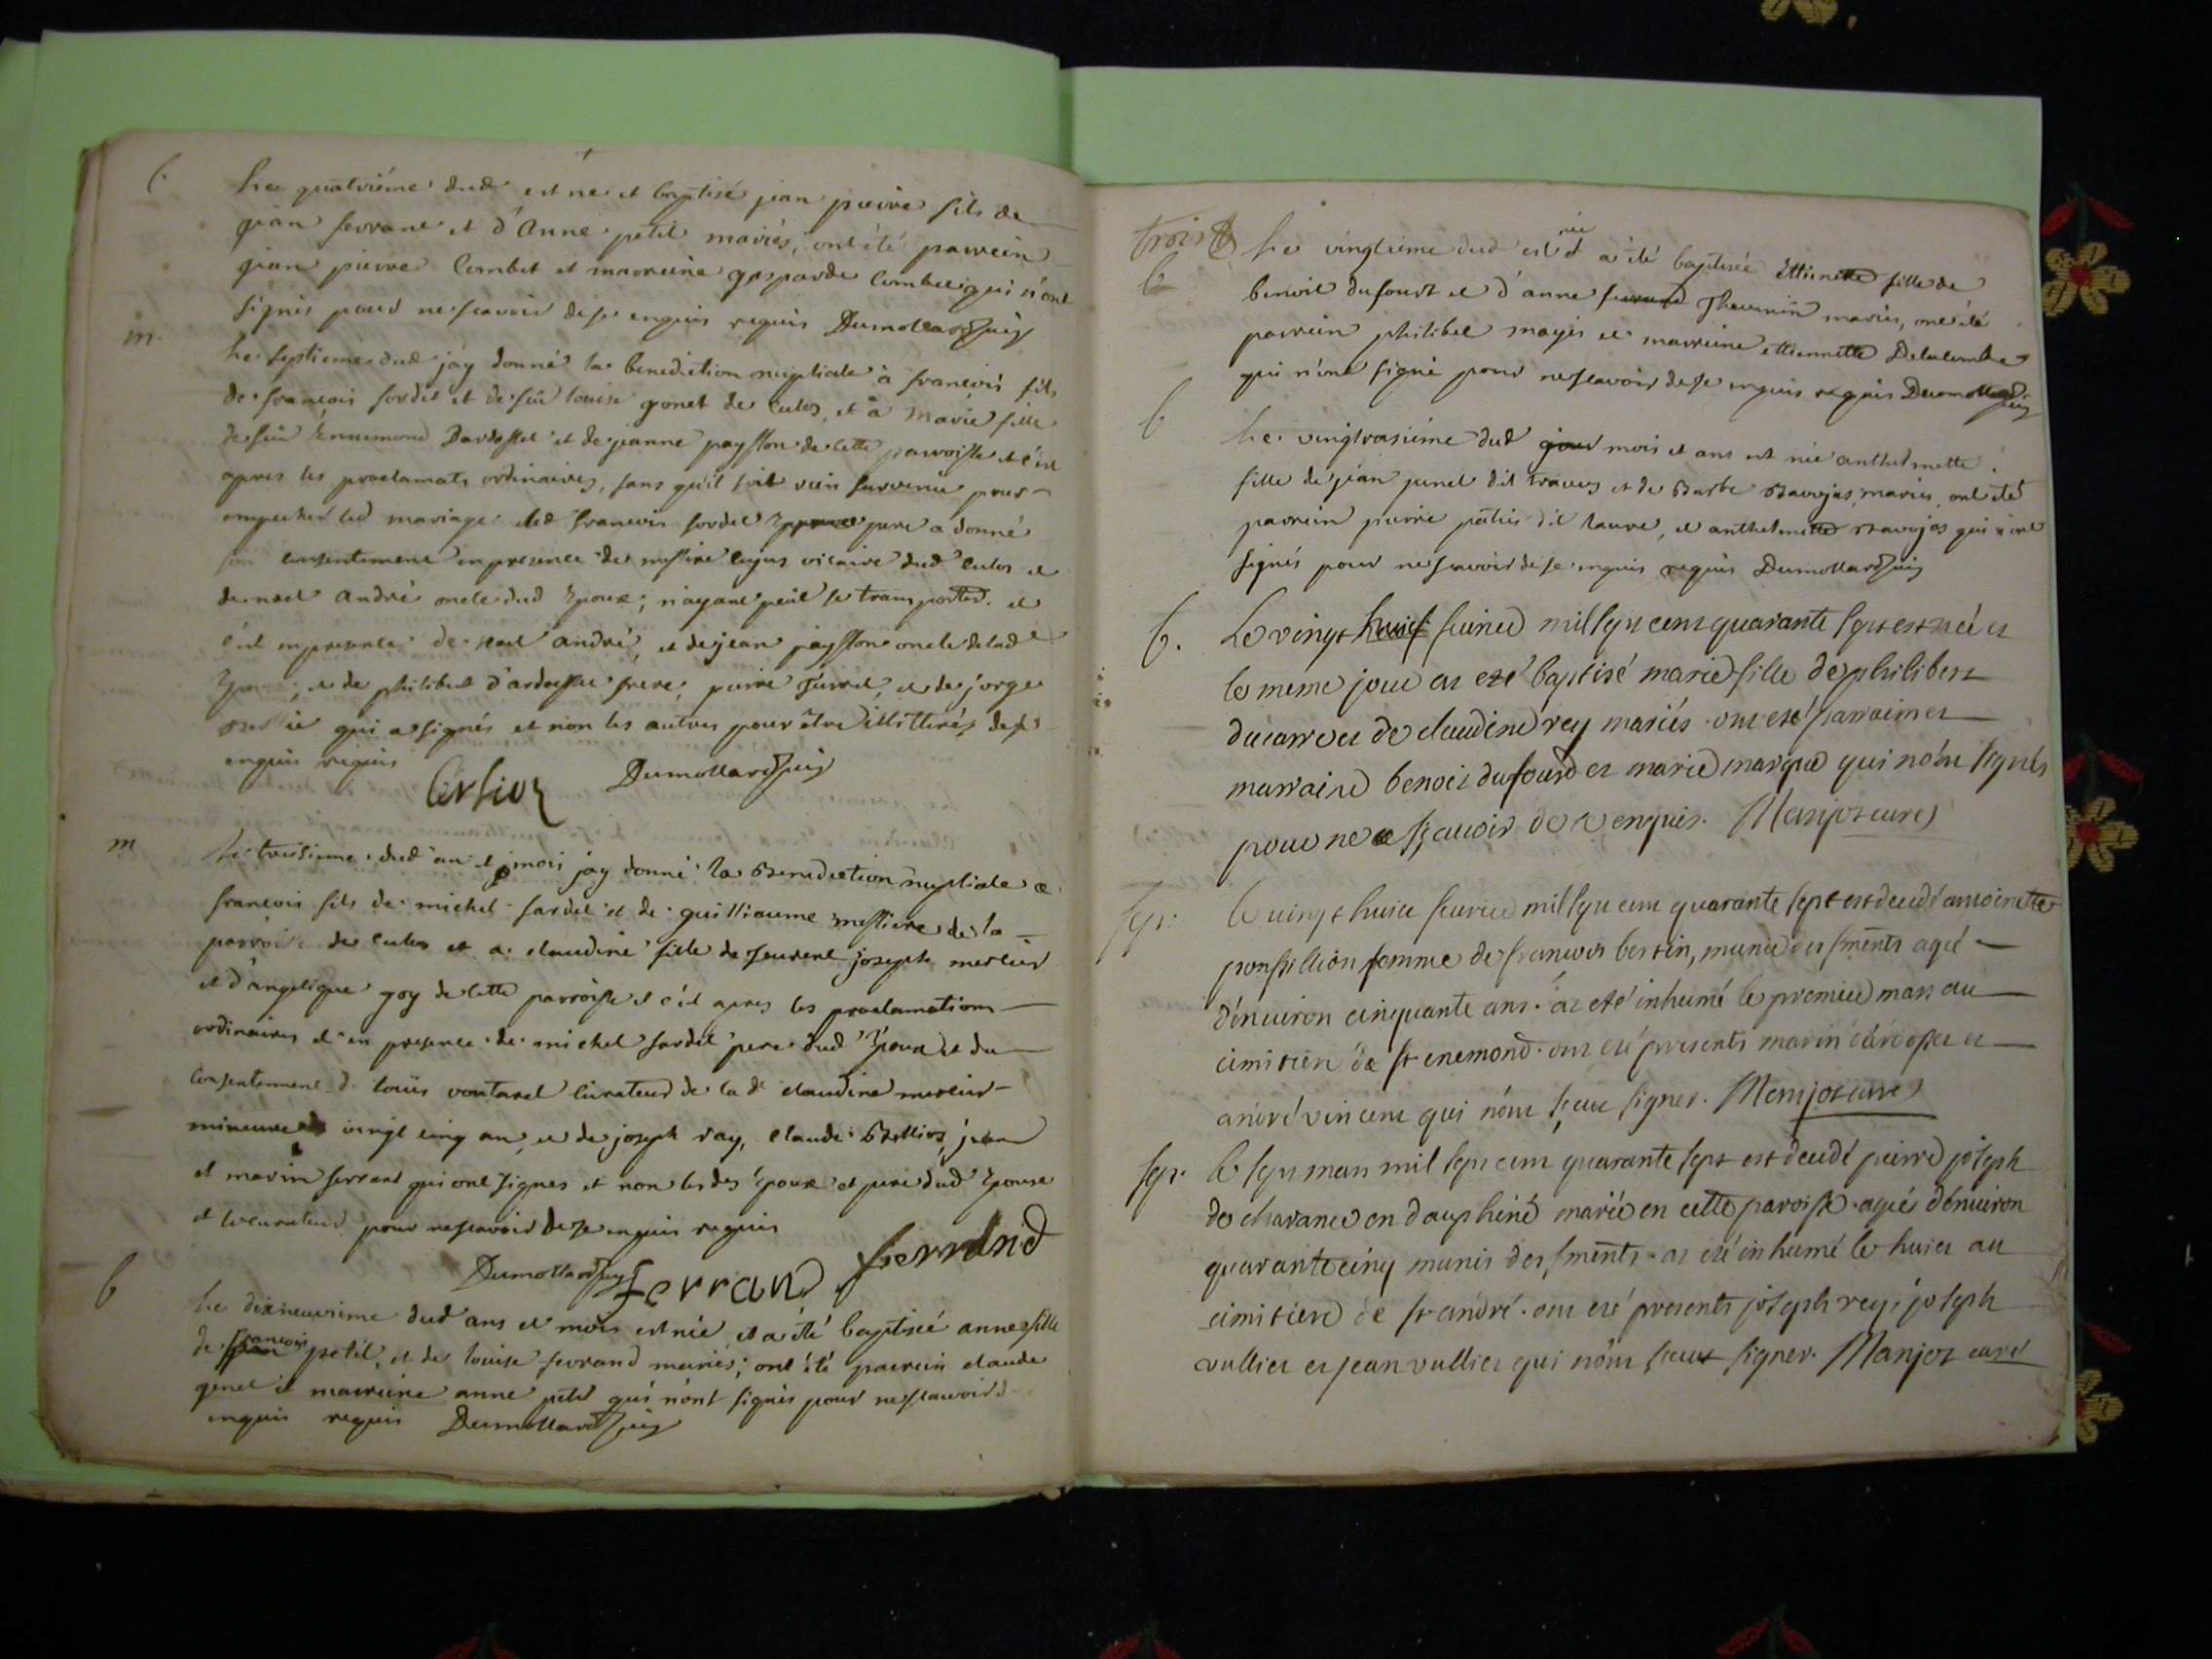 b. Le quatriéme dud est ne et baptisé jean pierre fils de
jean ferrane et d'Anne petit mariés, ont été parrein
jean pierre Combet et marreine gasparde Combet qui n'ont
signés pour ne scavoir de ce enquis requis Dumollard
m. Le septieme dud jay donné la benediction nuptiale à françois fils
de françois sordet et de feüe louise gonet de Culoz, et à Marie fille
de feu Ennemond Dardossel et de jeanne paysson de cette parroisse et c'est
apres les proclamats ordinaires, sans qu'il soit rien survenu pour
empecher led mariage led françois sordet pere a donné
son consentement en presence de messire vicaire dud Culos et
de noel André oncle dud Epoux, n'ayant peut se transporter et
c'est en presence de noel andré, et de jean paysson oncle de lad
Epouse, et de philibert d'ardossel frere, pierre et de jorge
qui a signés et non les autres pour être illitterés de ce
enquis requis
Dumollard
m Le troisieme dud an et mois jay donné la Benediction nuptiale a
françois fils de michel sardet et de guilliaume messiere de la
parroisse de culos et a claudine fille de joseph mercier
et d'angelique goy de cette parroisse et c'est apres les proclamations
ordinaires et en presence de michel sardet pere dud Epoux et du
consentement de loüis voutarel curateur de lad claudine mercier
mineure vingt cinq an, et de joseph ray, claude Bellios, jean
et marin ferrant qui ont signes et non lesdes Epoux et pere dud Epouse
et le curateur pour ne scavoir de ce enquis requis
Dumollard ferrand ferrand
b Le dixneuvieme dud ans et mois est née et a été baptisée anne fille
de françois petit, et de louise ferrand mariés; ont été parrein claude
genet et marreine anne petit qui n'ont signés pour ne scavoir
enquis requis Dumollard
trois
b Le vingtieme dud est née et a été baptisée Ettienette fille de
benoit dufourt et d'anne Thevenin mariés, ont été
parrein philibel mayes et marreine ettiennette Delacombe
qui n'ont signé pour ne scavoir de ce enquis requis Dumollard
b Le vingtroisiéme dud mois et ans est née anthelmette
fille de jean junet dit travers et de Barbe Bavojas mariés, ont été
parrein pierre patuis dit laure, et anthelmette Bavojas qui n'ont
signés pour ne scavoir de ce enquis requis Dumollard
b. Le vingt huict feuvrier mil sept cent quarante sept est née et
le meme jour at eté baptisé marie fille de philibert
ducarre et de claudine rey mariés ont eté parrain et
marraine benoit dufour et marie marque qui n'ont signés
pour ne sçauoir de ce enquis. Manjot curé
sep. Le uingt huict feuvrier mil sept cent quarante sept est decedé antoinette
ponsillion femme de francois bertin, munie des sments agée
d'enuiron cinquante ans. at eté inhumé le premier mars au
cimitiere de st enemond. ont eté presents marin dardossel et
andré vincent qui n'ont sçeu signer. Manjot curé
sep. le sept mars mil sept cent quarante sept est decedé pierre joseph
de charance en dauphiné marié en cette paroisse agé d'enuiron
quarante cinq munis des sments. at eté inhumé le huict au
cimitiere de st andré. ont eté presents joseph rey, joseph
vulliet et jean vulliet qui n'ont sceut signer. Manjot curé